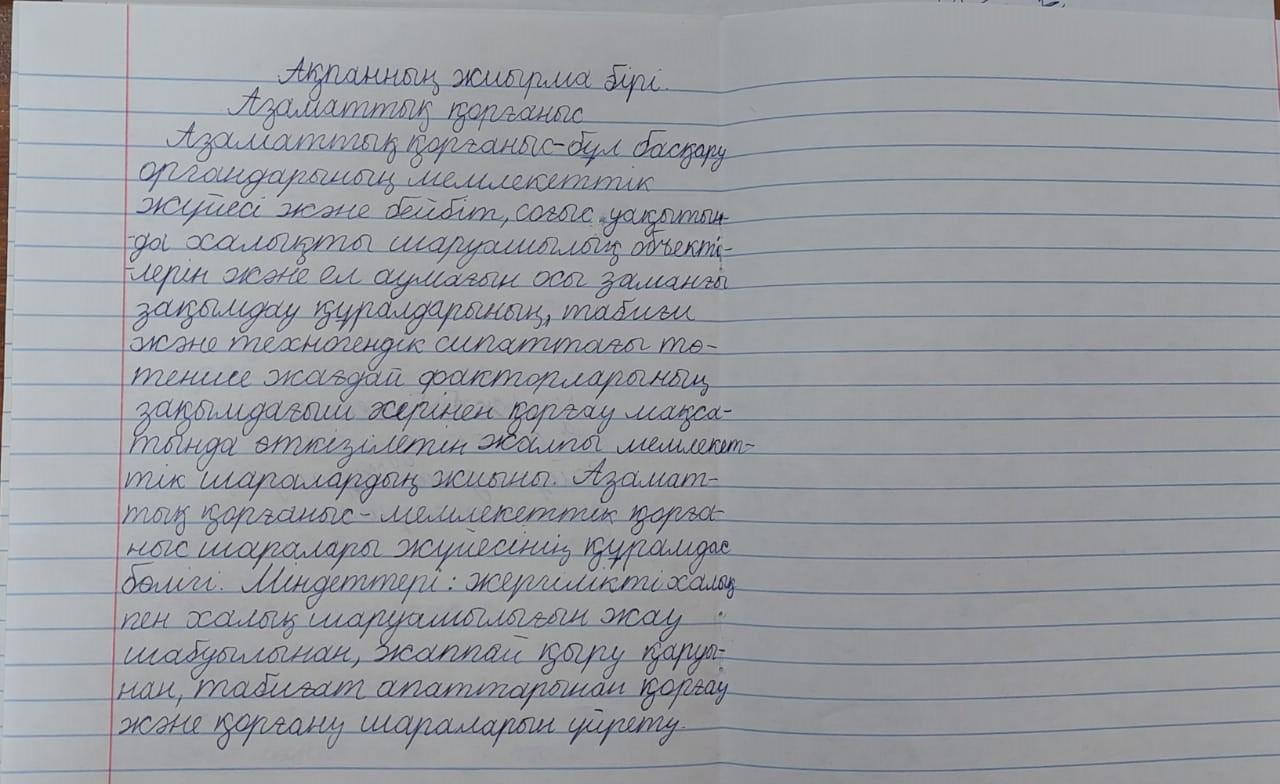 Ақпанның жиырма бірі.
Азаматтық қорғаныс
Азаматтық қорғаныс-бұл басқару
органдарының мемлекеттік
жүйесі және бейбіт, соғыс уақытын-
-да халықты шаруашылық объекті-
-лерін және ел аумағын осы заманғы
зақымдау құралдарының, табиғи
және техногендік сипаттағы тө-
тенше жағдай факторларының
зақымдағыш әсерінен қорғау мақса-
тында өткізілетін жалпы мемлекет-
тік шаралардың жиыны. Азамат-
тық қорғаныс - мемлекеттік қорға-
ныс шаралары жүйесінің құрамдас
бөлігі. Міндеттері: жергілікті халық
пен халық шаруашылығын жау
шабуылынан, жаппай қыру қаруы-
нан, табиғат апаттарынан қорғау
және қорғану шараларын үйрету.